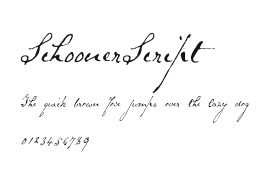 SchoonerScript
The quick brown fox jumps over the lazy dog
0123456789